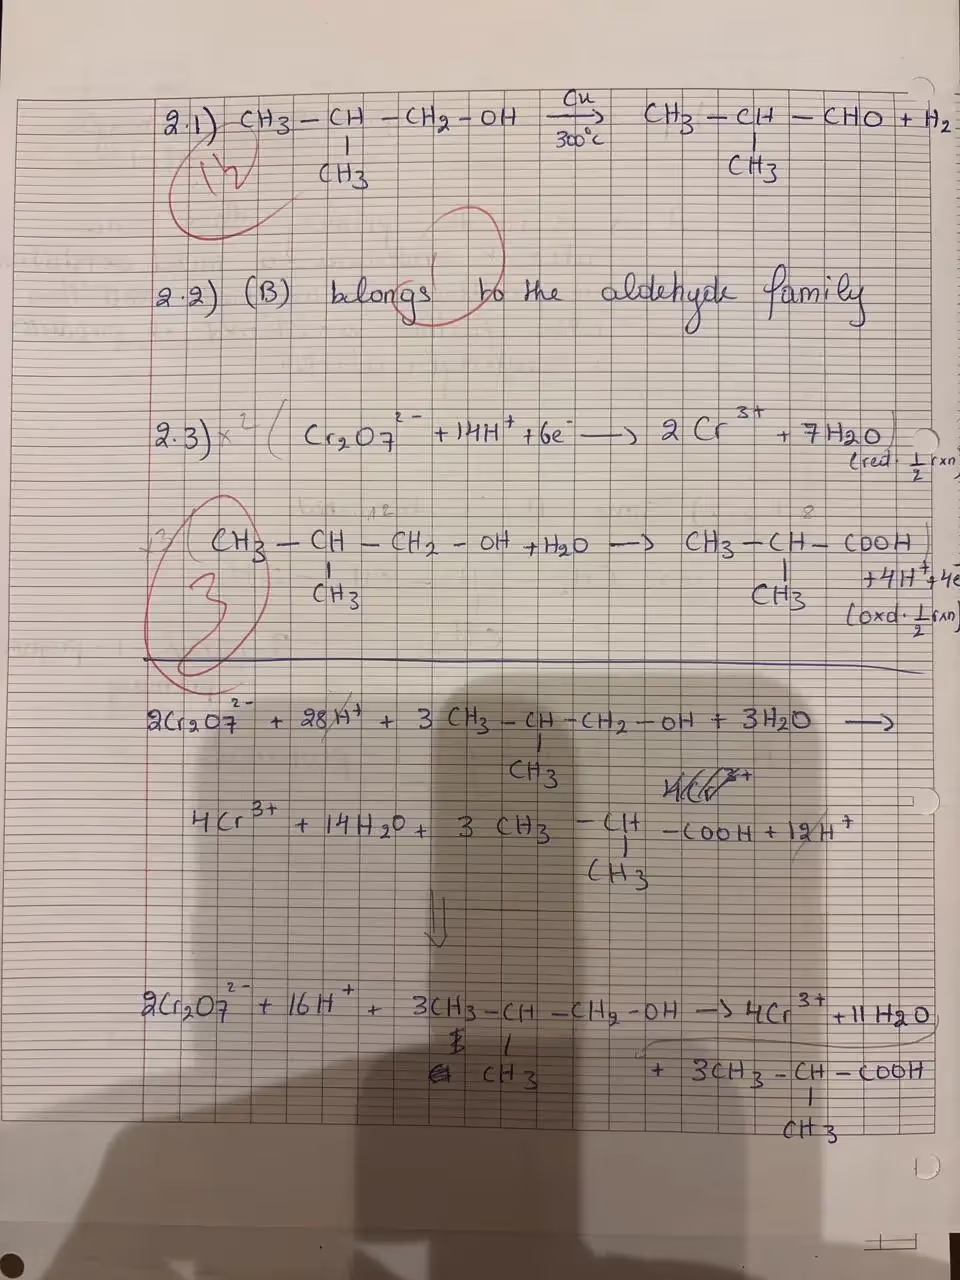 2.1) CH3 – CH – CH2 – OH Cu → 300°C CH3 – CH – CHO + H2
CH3 CH3
1½
2.2) (B) belongs to the aldehyde family
1
2.3) x2 ( Cr2O7 2- + 14H+ + 6e- → 2Cr 3+ + 7H2O )
(red. 1/2 rxn)
x3 ( CH3 – CH – CH2 – OH + H2O → CH3 – CH – COOH )
CH3 CH3 + 4H+ + 4e-
(oxd. 1/2 rxn)
3
2Cr2O7 2- + 28H+ + 3 CH3 – CH – CH2 – OH + 3H2O →
CH3
4Cr 3+ + 14H2O + 3 CH3 – CH – COOH + 12H+
CH3
⇓
2Cr2O7 2- + 16H+ + 3CH3 – CH – CH2 – OH → 4Cr 3+ + 11H2O
CH3
+ 3CH3 – CH – COOH
CH3